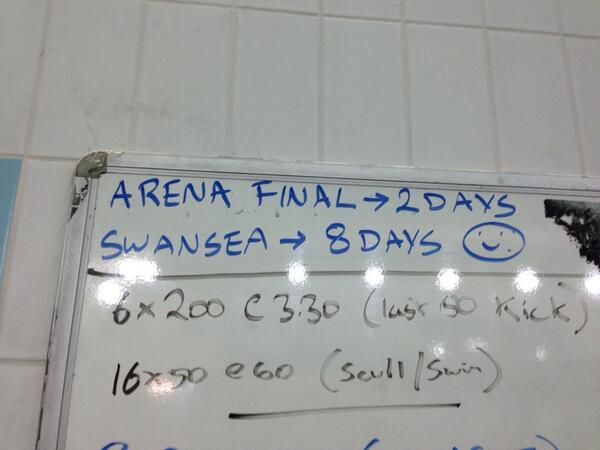 ARENA FINAL → 2 DAYS
SWANSEA → 8 DAYS
6 x 200 @ 3.30 (last 50 Kick)
16 x 50 @ 60 (Scull/Swim)